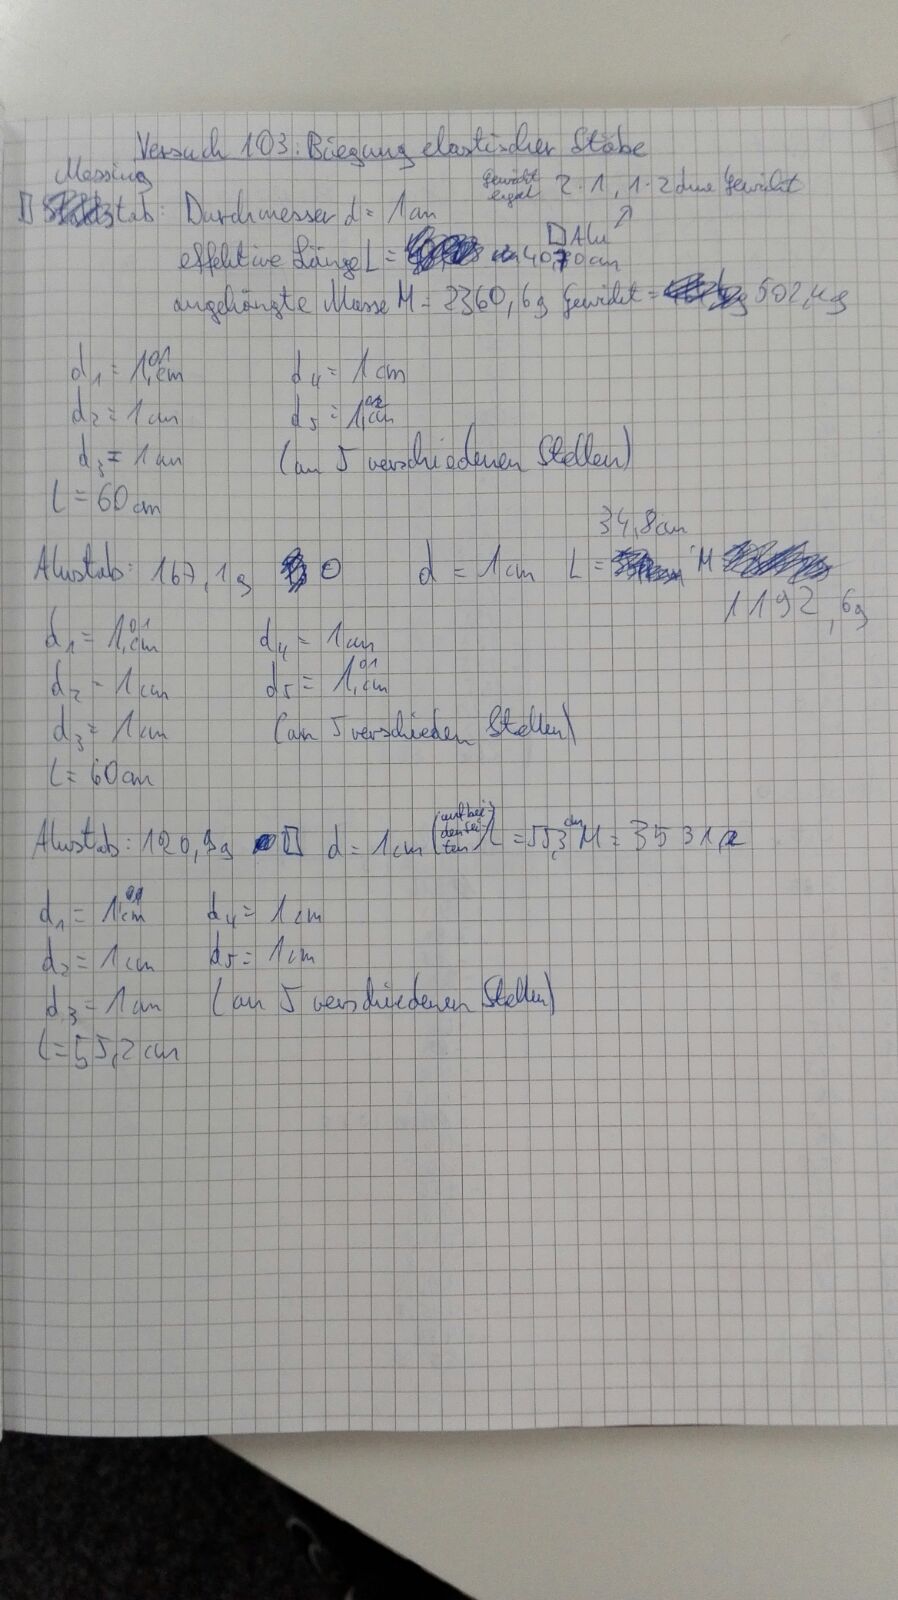 Versuch 103: Biegung elastischer Stäbe
Messing
Gewicht 2·1, 1·2 ohne Gewicht
stab: Durchmesser d = 1 cm
Alu
effektive Länge L = 40,70 cm
angehängte Masse M = 2360,6g Gewicht = 502,4g
d₁ = 1,01 cm d₄ = 1 cm
d₂ = 1 cm d₅ = 1,02 cm
d₃ = 1 cm (an 5 verschiedenen Stellen)
l = 60 cm
34,8 cm
Alustab: 167,1g O d = 1 cm L = M
1192,6g
d₁ = 1,01 cm d₄ = 1 cm
d₂ = 1 cm d₅ = 1,01 cm
d₃ = 1 cm (an 5 verschieden Stellen)
l = 60 cm
Alustab: 120,9g d = 1 cm (auf beiden Seiten) L = 55,3 cm M = 3531,2
d₁ = 1,01 cm d₄ = 1 cm
d₂ = 1 cm d₅ = 1 cm
d₃ = 1 cm (an 5 verschiedenen Stellen)
l = 55,2 cm